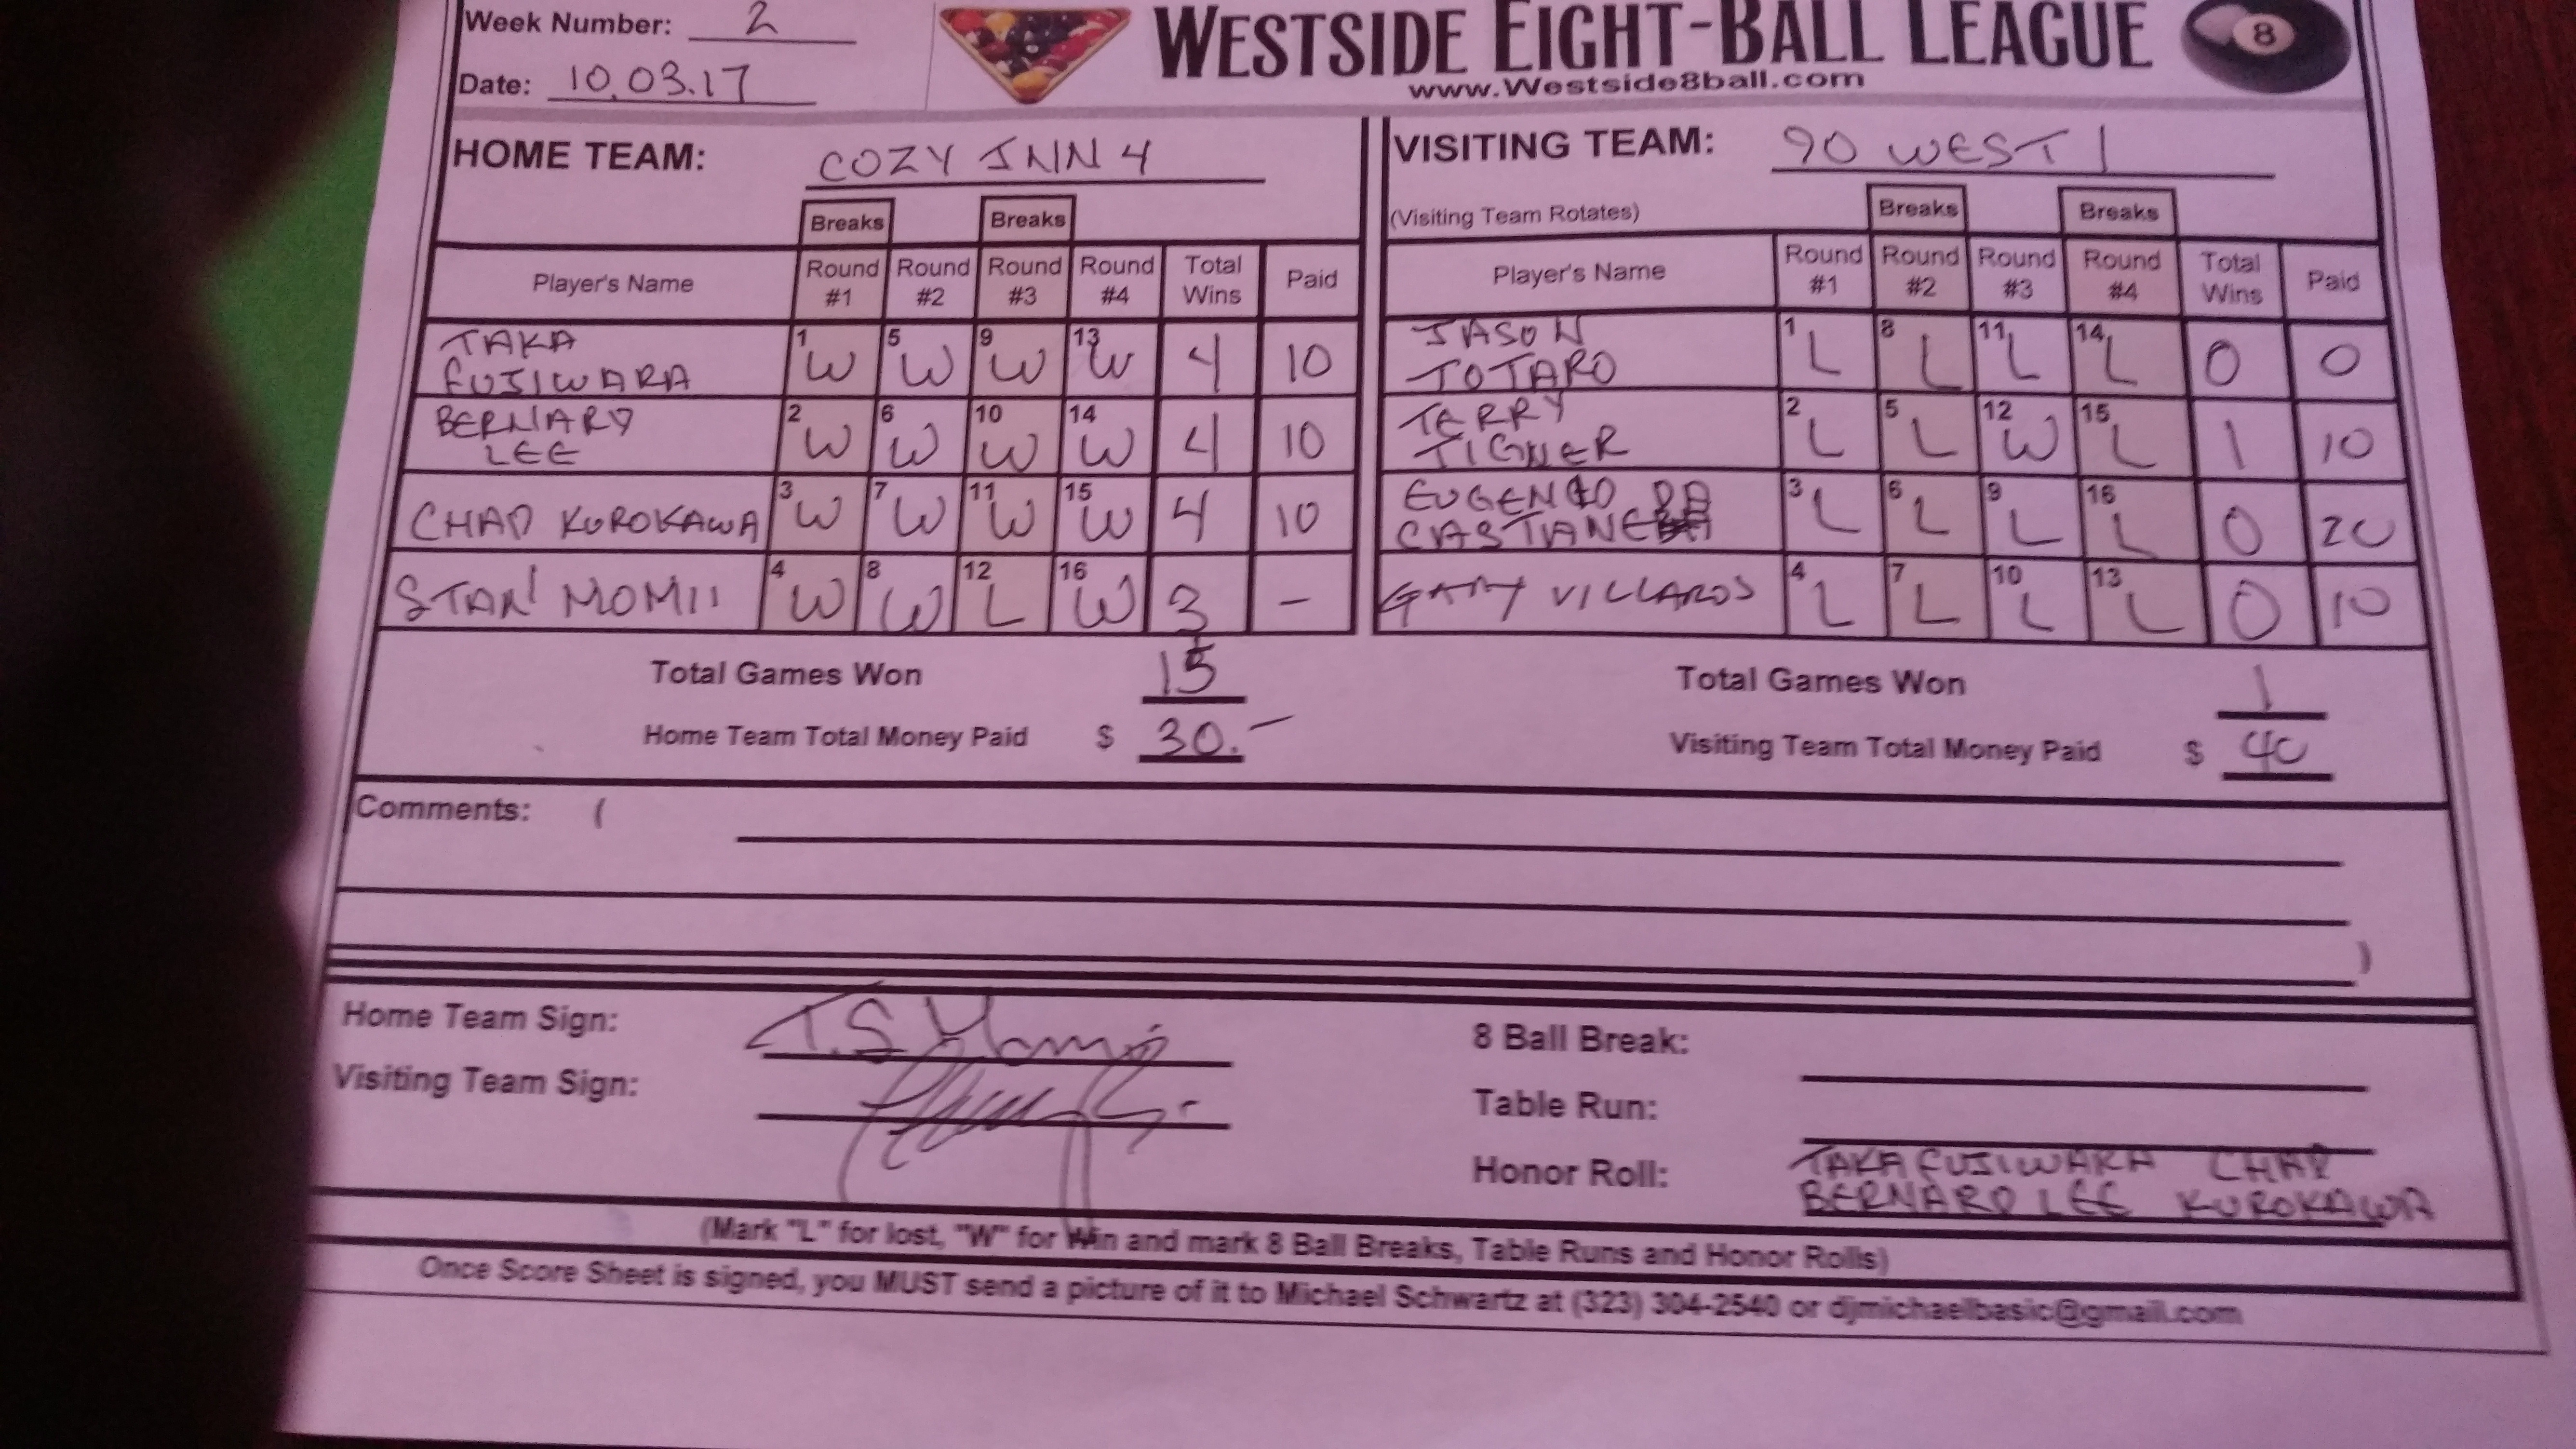 Week Number: 2
Date: 10.03.17
WESTSIDE EIGHT-BALL LEAGUE
www.Westside8ball.com
8
HOME TEAM: COZY INN 4
Breaks Breaks
Player's Name Round #1 Round #2 Round #3 Round #4 Total Wins Paid
TAKA FUJIWARA 1 W 5 W 9 W 13 W 4 10
BERNARD LEE 2 W 6 W 10 W 14 W 4 10
CHAD KUROKAWA 3 W 7 W 11 W 15 W 4 10
STAN MOMII 4 W 8 W 12 L 16 W 3 –
Total Games Won 15
Home Team Total Money Paid $ 30.–
VISITING TEAM: 90 WEST 1
(Visiting Team Rotates) Breaks Breaks
Player's Name Round #1 Round #2 Round #3 Round #4 Total Wins Paid
JASON TOTARO 1 L 8 L 11 L 14 L 0 0
TERRY TIGNER 2 L 5 L 12 W 15 L 1 10
EUGENIO DA 3 L 6 L 9 L 16 L 0 20
GARY VILLAROS 4 L 7 L 10 L 13 L 0 10
Total Games Won 1
Visiting Team Total Money Paid $ 40
Comments: (
)
Home Team Sign:
Visiting Team Sign:
8 Ball Break:
Table Run:
Honor Roll: TAKA FUJIWARA CHAD
BERNARD LEE KUROKAWA
(Mark "L" for lost, "W" for Win and mark 8 Ball Breaks, Table Runs and Honor Rolls)
Once Score Sheet is signed, you MUST send a picture of it to Michael Schwartz at (323) 304-2540 or djmichaelbasic@gmail.com